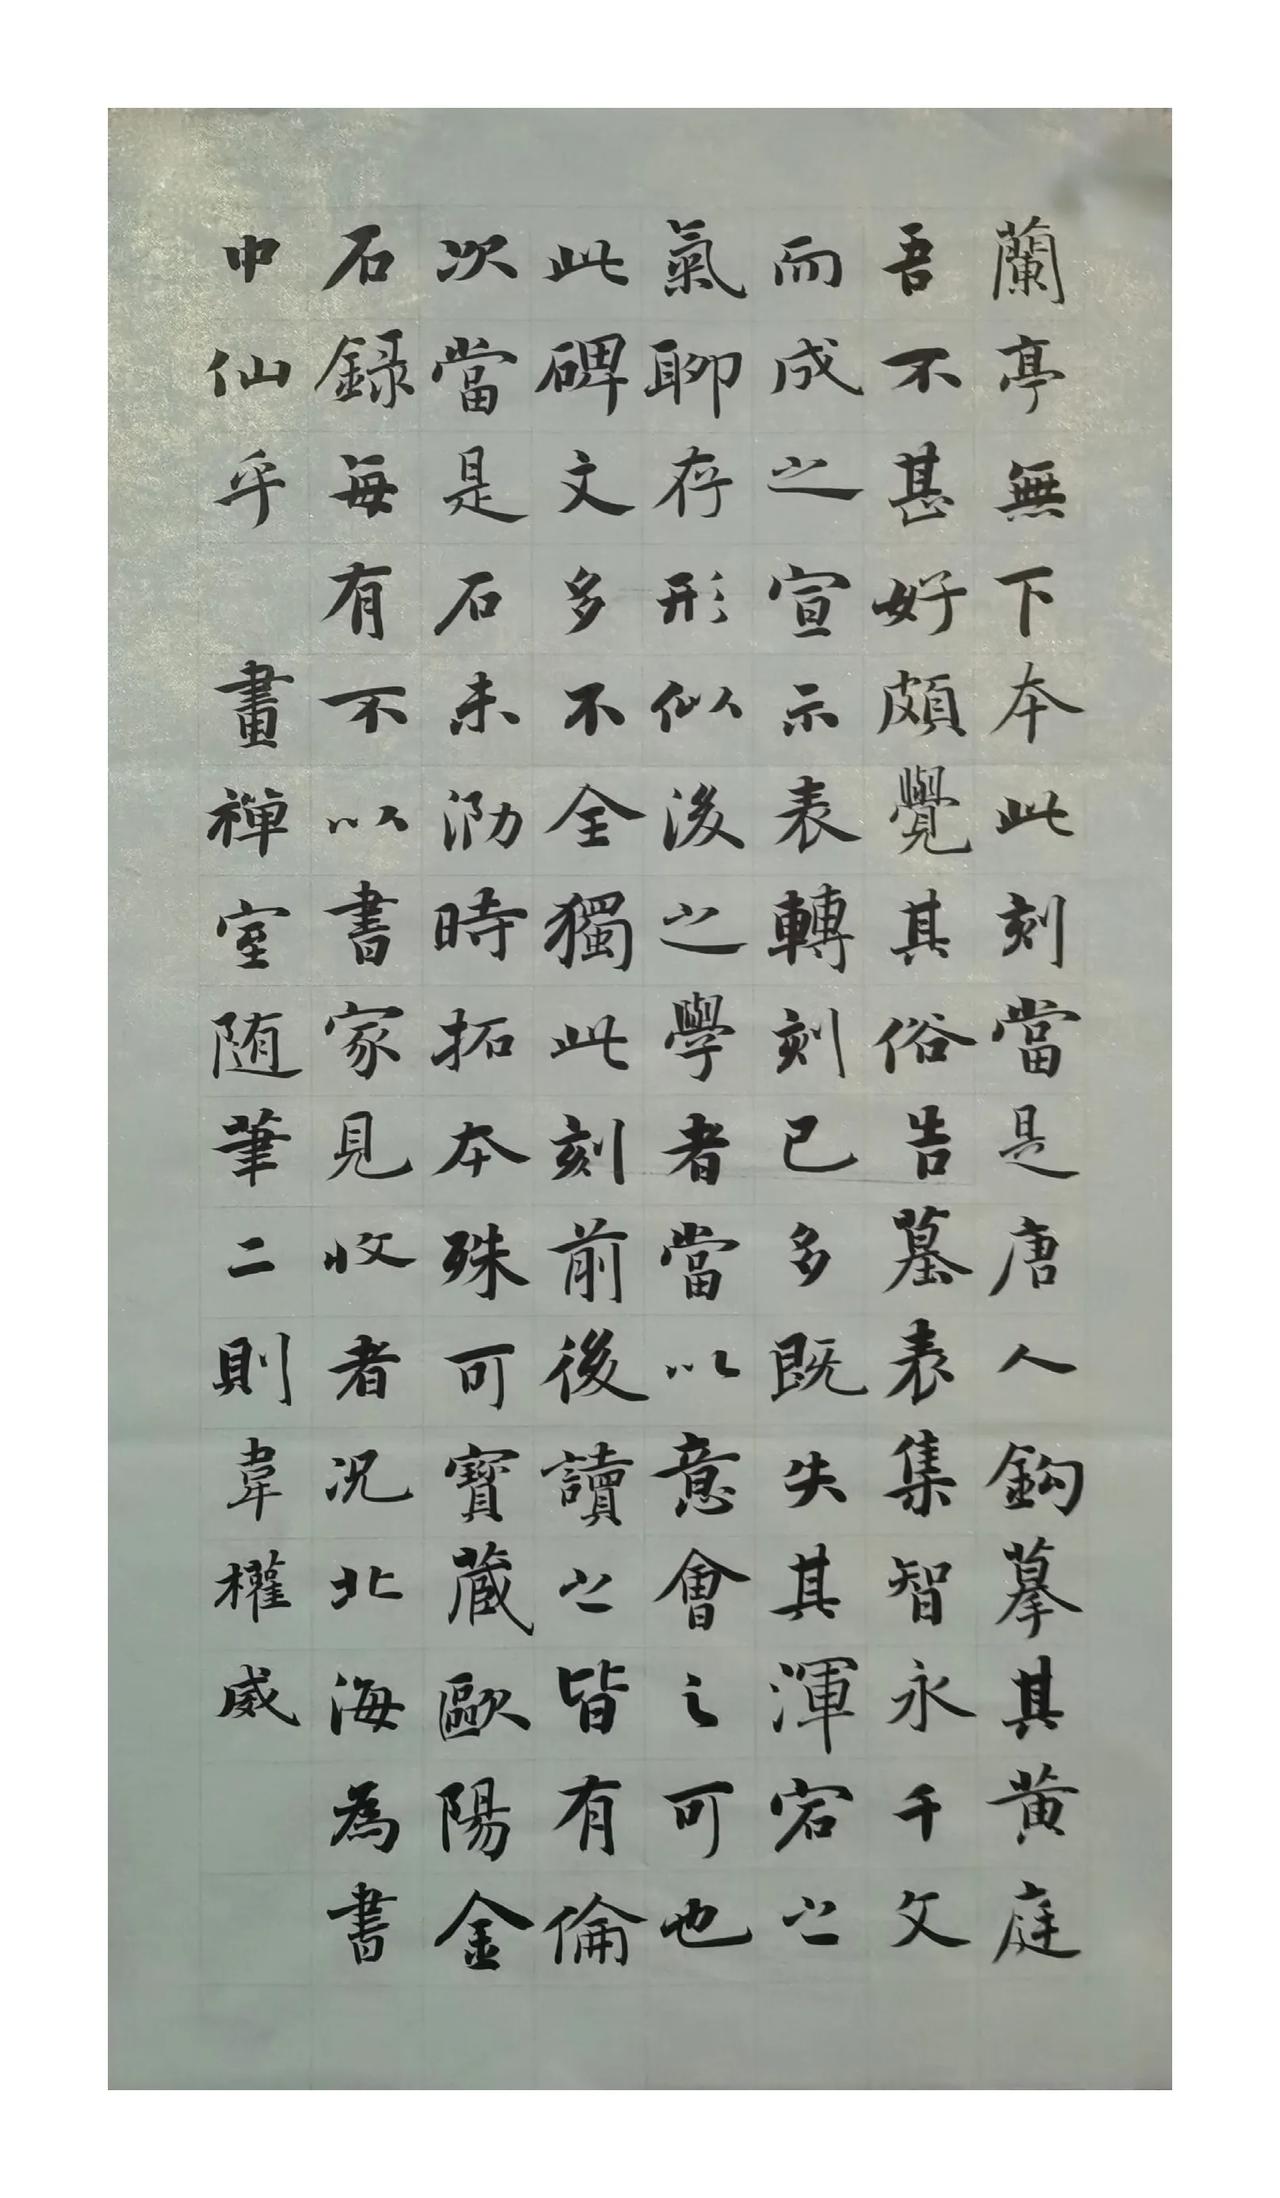 蘭亭無下本此刻當是唐人鈎摹其黄庭
吾不甚好頗覺其俗告墓表集智永千文
而成之宣示表轉刻已多既失其渾宕之
氣聊存形似後之學者當以意會之可也
此碑文多不全獨此刻前後讀之皆有倫
次當是石未泐時拓本殊可寶蔵歐陽金
石録每有不以書家見收者况北海為書
中仙乎 畫禅室随筆二則韋權威